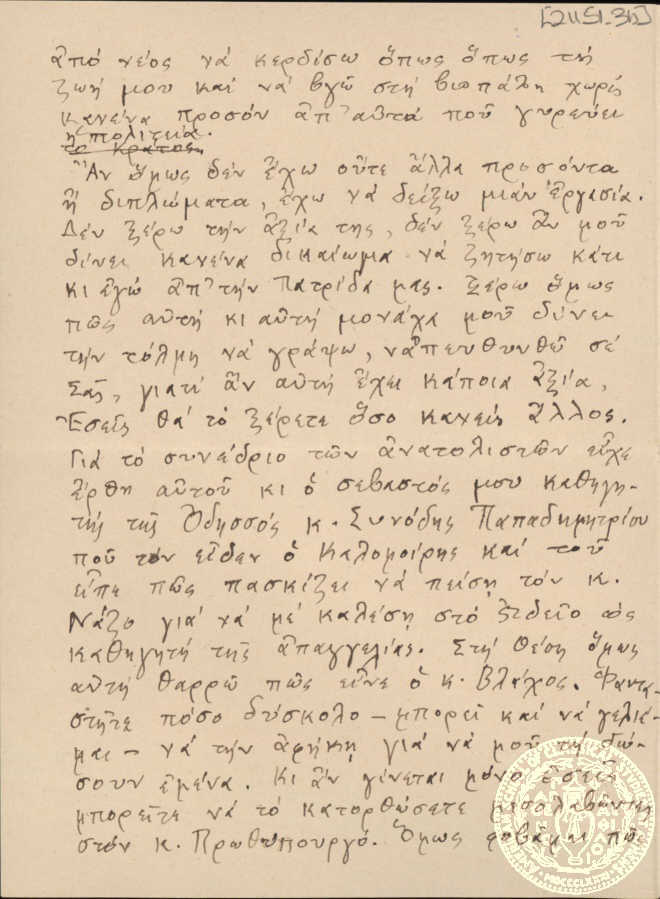 [2115]-3b]
ἀπό νέος νά κερδίσω ὅπως ὅπως τή
ζωή μου καί νά βγῶ στή βιοπάλη χωρίς
κανένα προσόν ἀπ' αὐτά ποῦ γυρεύει
ἡ πολιτεία.
τὸ κράτος.
Ἂν ὅμως δέν ἔχω οὔτε ἄλλα προσόντα
ἤ διπλώματα, ἔχω νά δείξω μιάν ἐργασία.
Δέν ξέρω τήν ἀξία της, δέν ξέρω ἄν μοῦ
δίνει κανένα δικαίωμα νά ζητήσω κάτι
κι ἐγώ ἀπ' τήν Πατρίδα μας. Ξέρω ὅμως
πῶς αὐτή κι αὐτή μονάχα μοῦ δίνει
τήν τόλμη νά γράψω, ν' ἀπευθυνθῶ σέ
Σᾶς, γιατί ἄν αὐτή ἔχει κάποια ἀξία,
Ἐσεῖς θά τό ξέρετε ὅσο κανείς ἄλλος.
Γιά τό συνέδριο τῶν ἀνατολιστῶν εἶχε
ἔρθη αὐτοῦ κι ὁ σεβαστός μου καθηγη-
τής τῆς Ὀδησσός κ. Συνόδης Παπαδημητρίου
ποῦ τόν εἶδεν ὁ Καλομοίρης καί τοῦ
εἶπε πῶς πασκίζει νά πείσῃ τόν κ.
Νάζο γιά νά μέ καλέσῃ στό Ὠδεῖο ὡς
καθηγητή τῆς ἀπαγγελίας. Στή θέση ὅμως
αὐτή θαρρῶ πῶς εἶνε ὁ κ. Βλάχος. Φαντα-
στῆτε πόσο δύσκολο – μπορεῖ καί νά γελιέ-
μαι – νά τήν ἀφήκῃ γιά νά μοῦ τή δώ-
σουν ἐμένα. Κι ἄν γίνεται μόνο ἐσεῖς
μπορεῖτε νά τό κατορθώσετε μεσολαβῶντες
στόν κ. Πρωθυπουργό. Ὅμως φοβᾶμαι πῶς